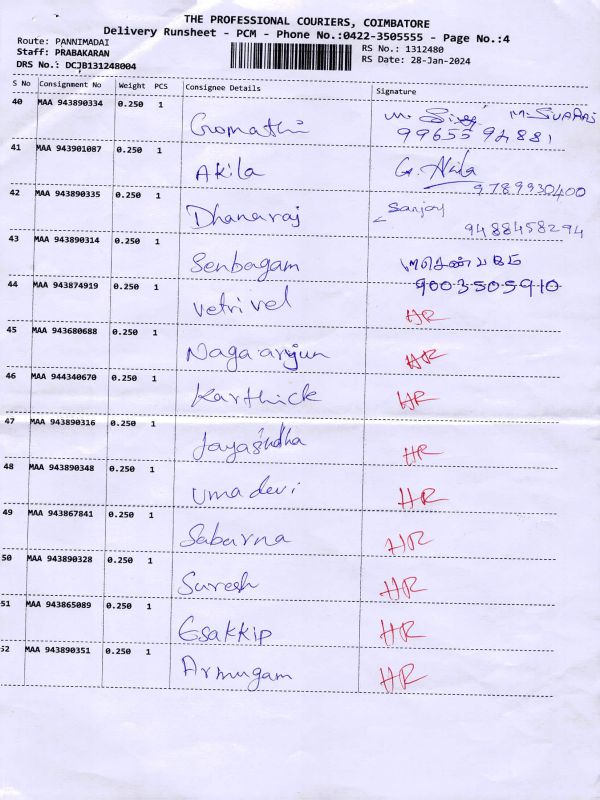 THE PROFESSIONAL COURIERS, COIMBATORE
Delivery Runsheet - PCM - Phone No.:0422-3505555 - Page No.:4
Route: PANNIMADAI
Staff: PRABAKARAN
DRS No.: DCJB131248004
RS No.: 1312480
RS Date: 28-Jan-2024
S No Consignment No Weight PCS Consignee Details Signature
40 MAA 943890334 0.250 1 Gomathi
99655 94881
41 MAA 943901087 0.250 1 Akila G. Akila
9789930400
42 MAA 943890335 0.250 1 Dhanaraj Sanjay
9488458294
43 MAA 943890314 0.250 1 Senbagam
9003505910
44 MAA 943874919 0.250 1 Vetrivel HR
45 MAA 943680688 0.250 1 Nagaarjun HR
46 MAA 944340670 0.250 1 Karthick HR
47 MAA 943890316 0.250 1 HR
48 MAA 943890348 0.250 1 Umadevi HR
49 MAA 943867841 0.250 1 Sabarna HR
50 MAA 943890328 0.250 1 Suresh HR
51 MAA 943865089 0.250 1 Esakkip HR
52 MAA 943890351 0.250 1 Armugam HR